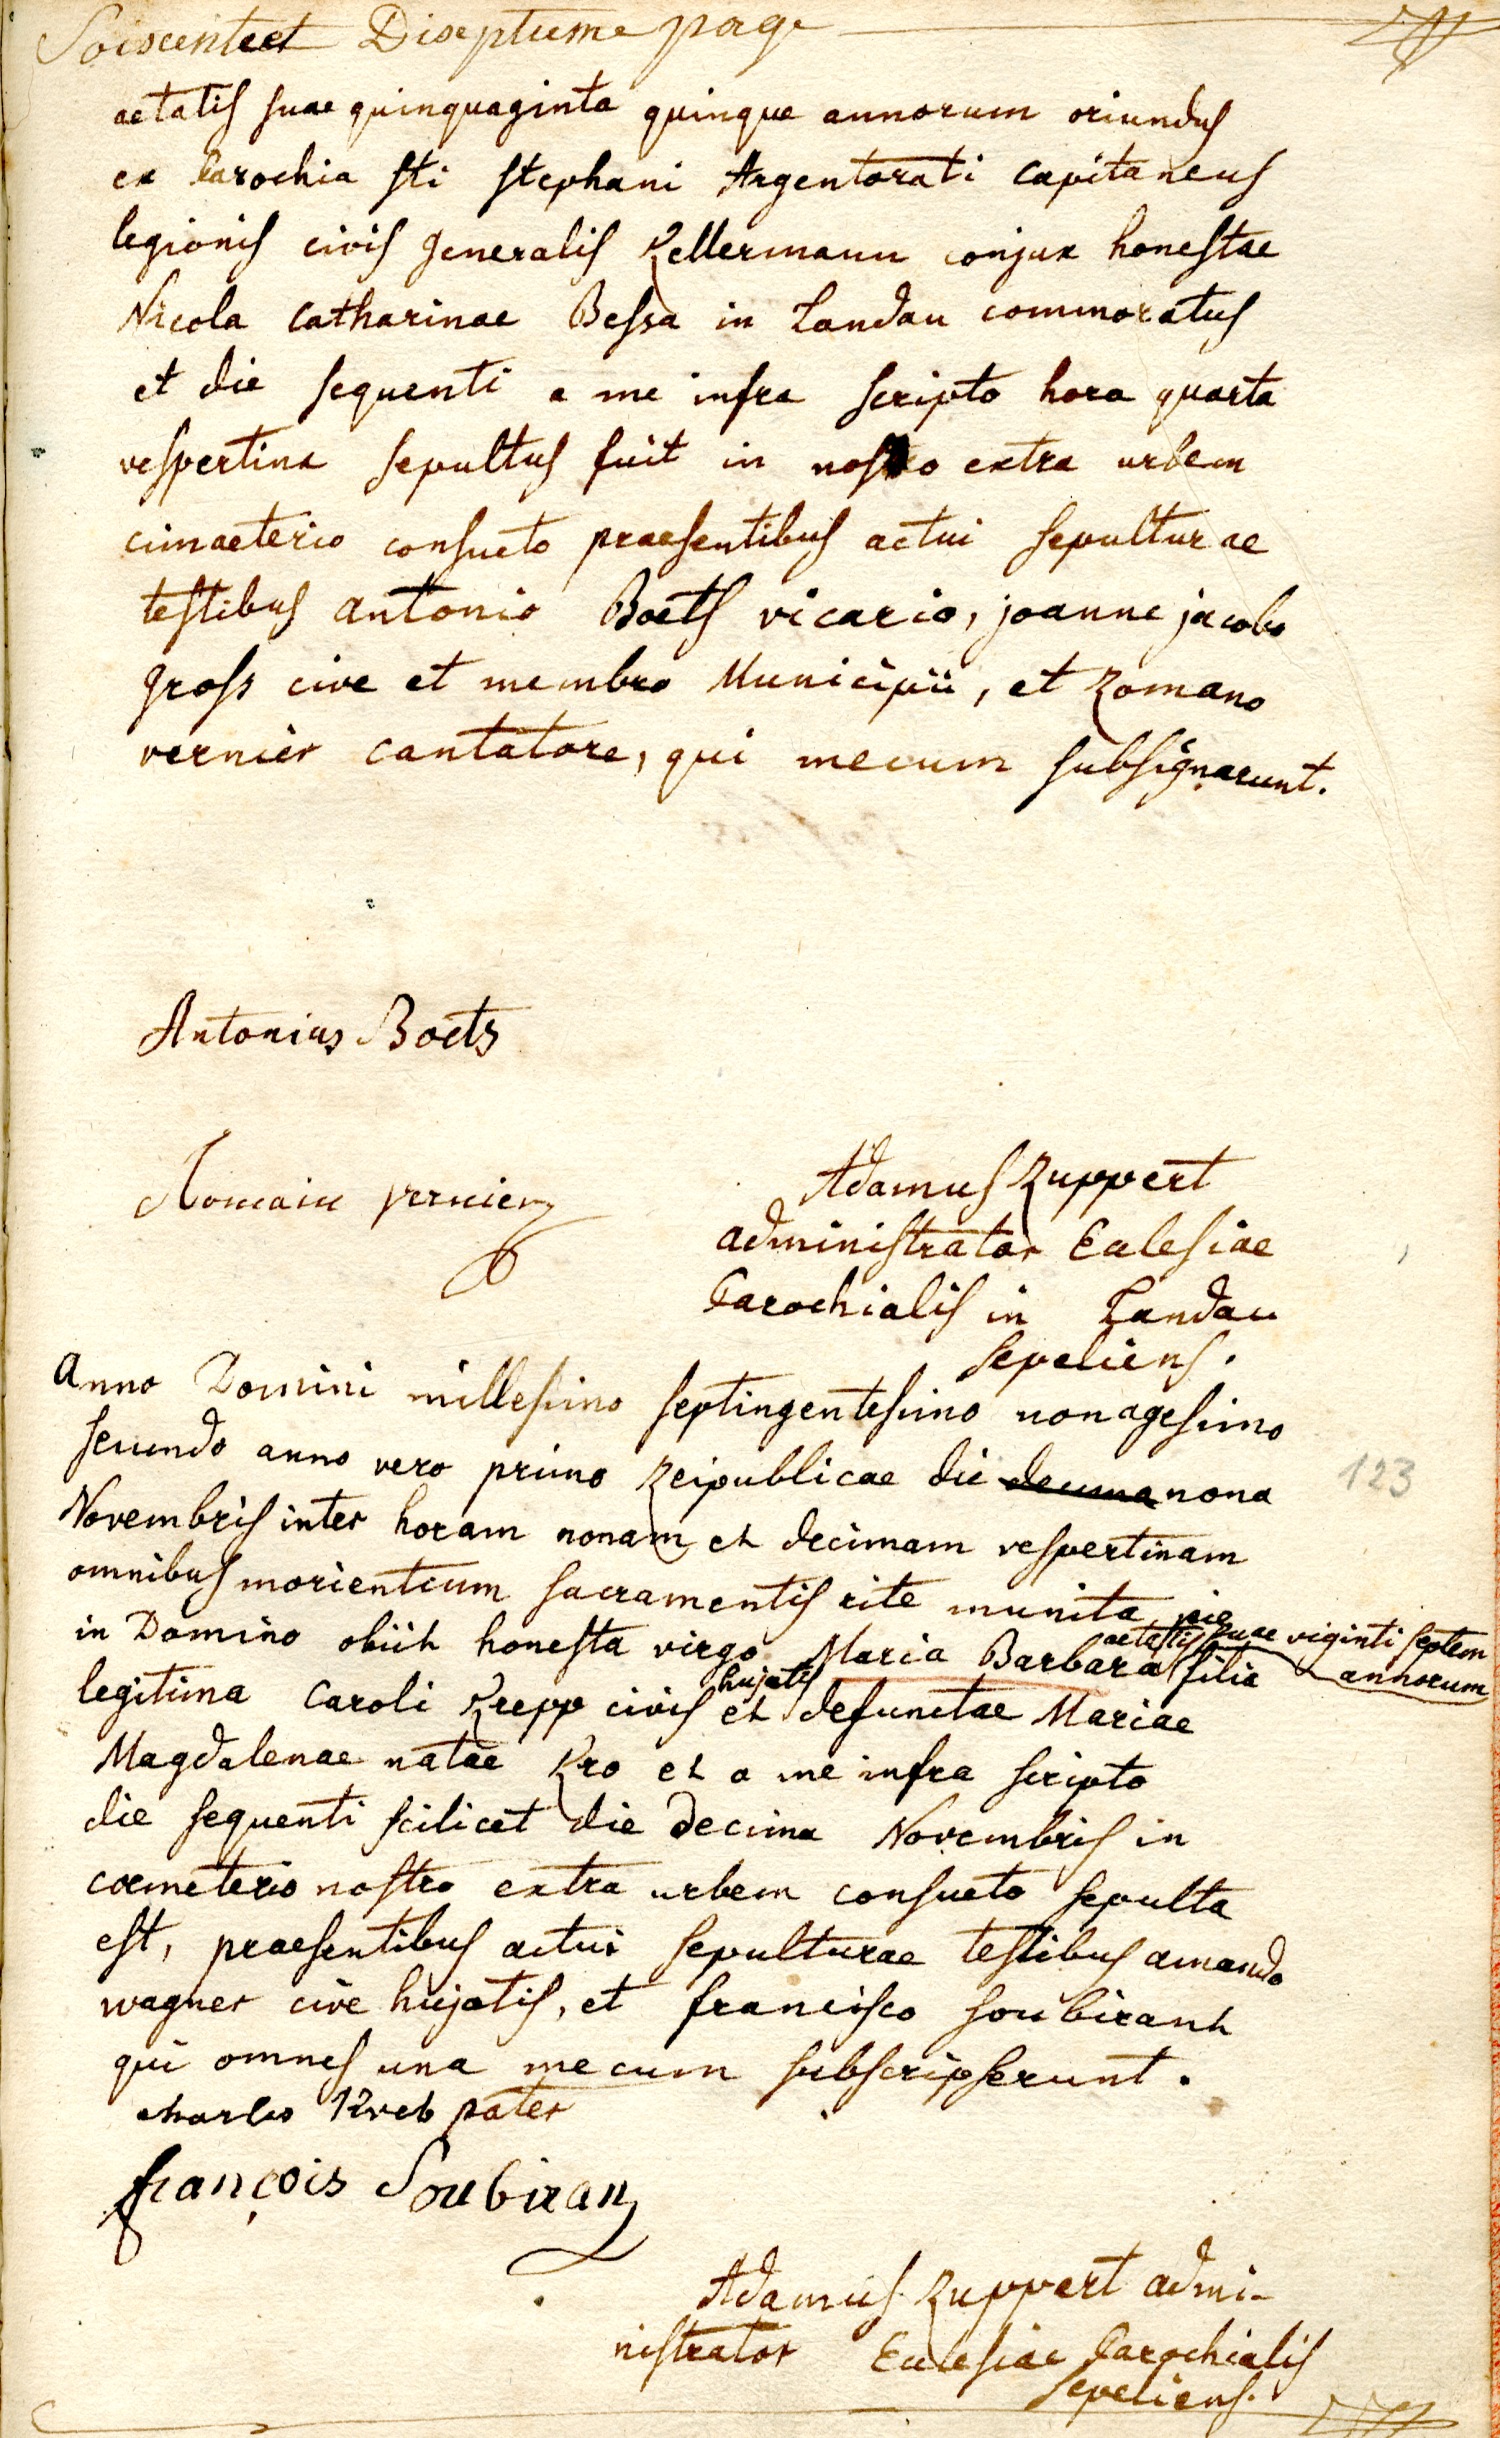 Soiscenteet Diseptieme page
aetatis suae quinquaginta quinque annorum oriundus
ex Parochia sti stephani Argentorati capitaneus
legionis civis generalis Kellermann conjux honestae
Nicola Catharinae Bessa in Landau commoratus
et die sequenti a me infra scripto hora quarta
vespertina sepultus fuit in nostro extra urbem
cimaeterio consueto praesentibus actui sepulturae
testibus antonio Boets vicario, joanne jacobo
gross cive et membro Municipii, et Romano
vernier cantatore, qui mecum subsignarunt.
Antonius Boets
Romain vernier
Adamus Ruppert
administrator Eclesiae
Parochialis in Landau
sepeliens.
Anno Domini millesimo septingentesimo nonagesimo
secundo anno vero primo Reipublicae die decima nona
123
Novembris inter horam nonam et decimam vespertinam
omnibus morientium sacramentis rite munita, pie
in Domino obiit honesta virgo Maria Barbara aetatis suae viginti septem annorum filia
legitima Caroli Krepp civis hujatis et defunctae Mariae
Magdalenae natae Kro et a me infra scripto
die sequenti scilicet die decima Novembris in
coemeterio nostro extra urbem consueto sepulta
est, praesentibus actui sepulturae testibus amando
wagner cive hujatis, et francisco soubirant
qui omnes una mecum subscripserunt.
charles Kreb pater
françois Soubiran
Adamus Ruppert admi-
nistrator Eclesiae Parochialis
sepeliens.